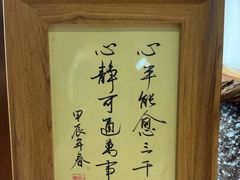 心平能愈三千疾
心静可通万事理
甲辰年春